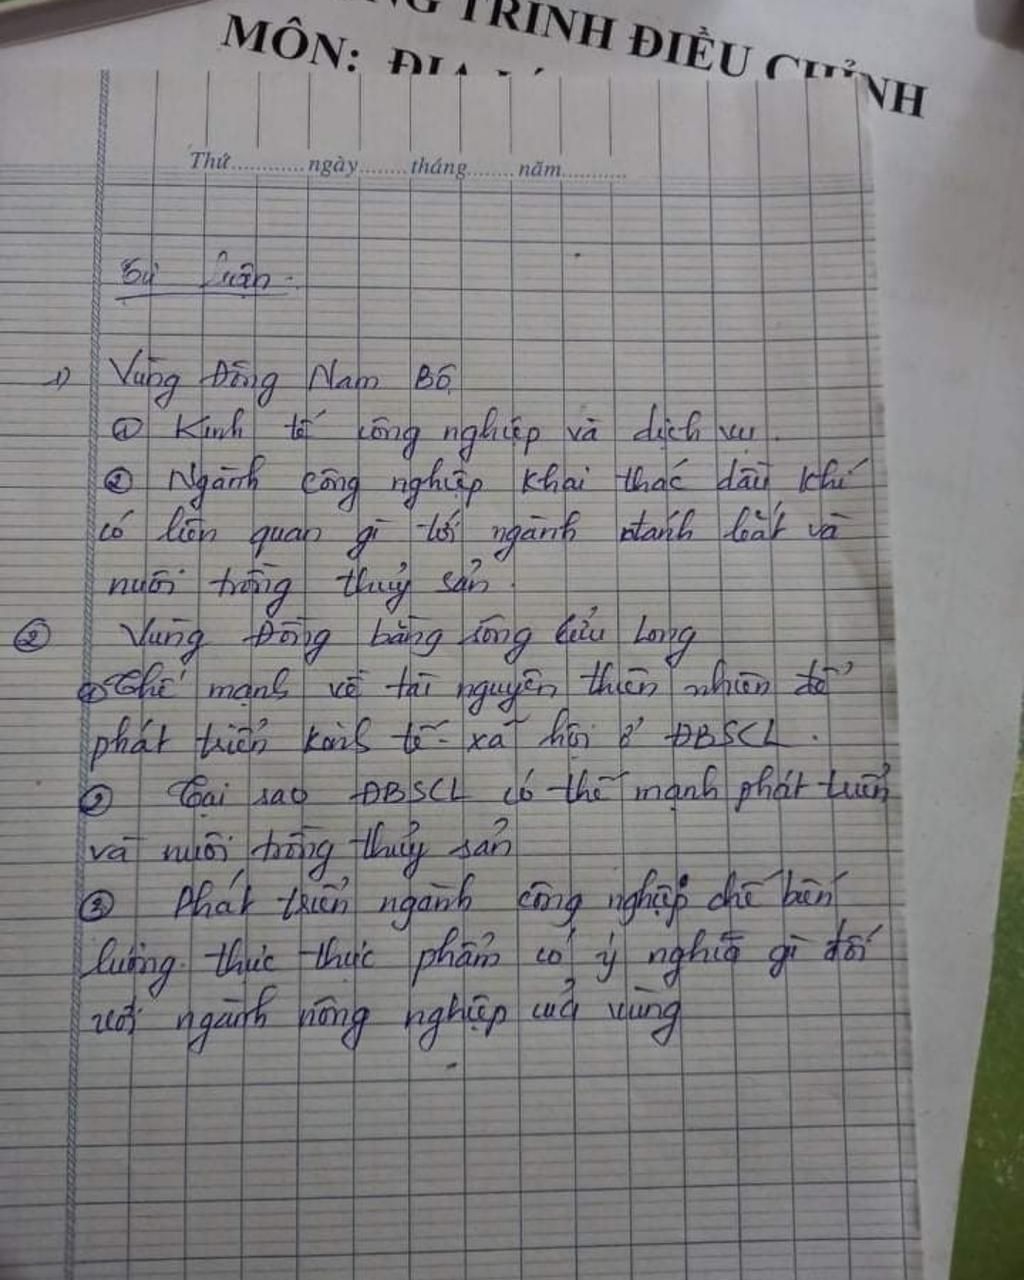 TRÌNH ĐIỀU CHỈNH
MÔN: ĐỊA LÝ
Thứ............ngày........tháng........năm...........
Tự Luận.
1) Vùng Đông Nam Bộ
① Kinh tế công nghiệp và dịch vụ.
② Ngành công nghiệp khai thác dầu khí
có liên quan gì tới ngành đánh bắt và
nuôi trồng thuỷ sản.
② Vùng Đồng bằng sông Cửu Long
① Thế mạnh về tài nguyên thiên nhiên để
phát triển kinh tế - xã hội ở ĐBSCL.
② Tại sao ĐBSCL có thế mạnh phát triển
và nuôi trồng thuỷ sản
③ Phát triển ngành công nghiệp chế biến
lương thực thực phẩm có ý nghĩa gì đối
với ngành nông nghiệp của vùng